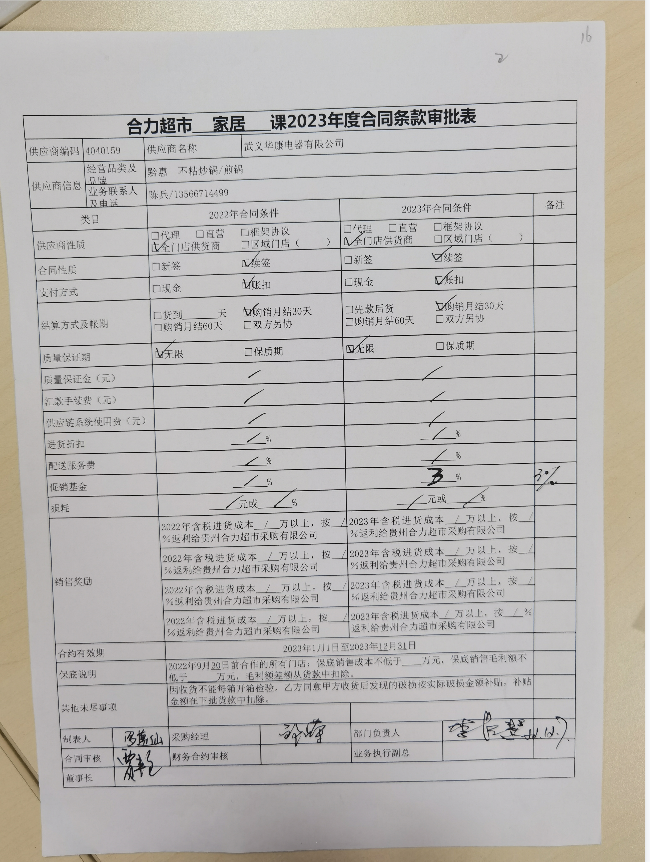 16
2
合力超市 家居 课2023年度合同条款审批表
供应商编码 4040159 供应商名称 武义华康电器有限公司
供应商信息 经营品类及品牌 黔惠 不粘炒锅/煎锅
业务联系人及电话 陈兵/13566714499
类目 2022年合同条件 2023年合同条件 备注
供应商性质 □代理 □直营 □框架协议 □代理 □直营 □框架协议
☑全门店供货商 □区域门店（ ） ☑全门店供货商 □区域门店（ ）
合同性质 □新签 ☑续签 □新签 ☑续签
支付方式 □现金 ☑账扣 □现金 ☑账扣
结算方式及账期 □货到____天 ☑购销月结30天 □先款后货 ☑购销月结30天
□购销月结60天 □双方另协 □购销月结60天 □双方另协
质量保证期 ☑无限 □保质期 ☑无限 □保质期
质量保证金（元） / /
汇款手续费（元） / /
供应链系统使用费（元） / /
进货折扣 / % / %
配送服务费 / % / %
促销基金 / % 3 % 3%
损耗 / 元或 / % / 元或 / %
销售奖励 2022年含税进货成本 / 万以上，按 / %返利给贵州合力超市采购有限公司 2023年含税进货成本 / 万以上，按 / %返利给贵州合力超市采购有限公司
2022年含税进货成本 / 万以上，按 / %返利给贵州合力超市采购有限公司 2023年含税进货成本 / 万以上，按 / %返利给贵州合力超市采购有限公司
2022年含税进货成本 / 万以上，按 / %返利给贵州合力超市采购有限公司 2023年含税进货成本 / 万以上，按 / %返利给贵州合力超市采购有限公司
2022年含税进货成本 / 万以上，按 / %返利给贵州合力超市采购有限公司 2023年含税进货成本 / 万以上，按 / %返利给贵州合力超市采购有限公司
合约有效期 2023年1月1日至2023年12月31日
保底说明 2022年9月20日前合作的所有门店：保底销售成本不低于____万元，保底销售毛利额不
低于____万元，毛利额差额从货款中扣除。
其他未尽事项 因收货不能每箱开箱检验，乙方同意甲方收货后发现的破损按实际破损金额补贴；补贴
金额在下批货款中扣除。
制表人 采购经理 部门负责人
合同审核 财务合约审核 业务执行副总
董事长